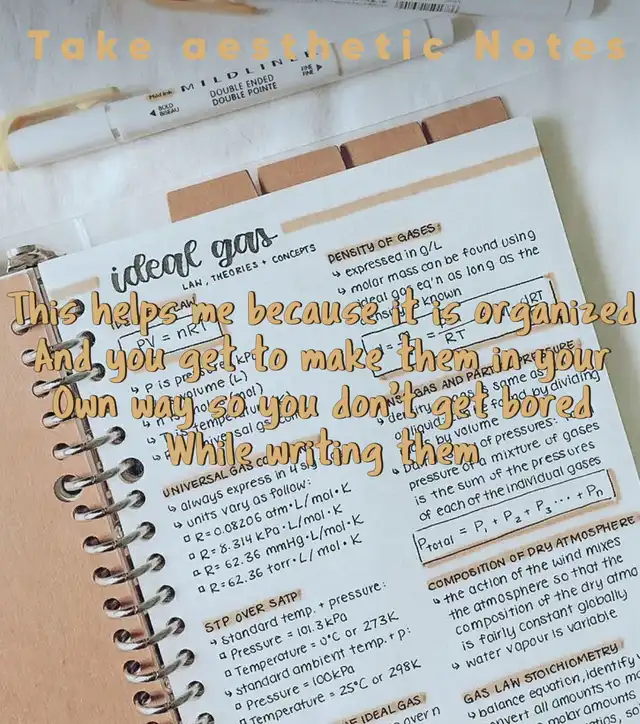 Take aesthetic Notes
MILDLINER
DOUBLE ENDED
DOUBLE POINTE
BOLD
BISEAU
FINE
FINE
ideal gas
LAW, THEORIES + CONCEPTS
This helps me because it is organized
And you get to make them in your
Own way so you don't get bored
While writing them
PV = nRT
UNIVERSAL GAS
↳ always express in 4 sig
↳ units vary as follow:
□ R = 0.08206 atm·L/mol·K
□ R = 8.314 kPa·L/mol·K
□ R = 62.36 mmHg·L/mol·K
□ R = 62.36 torr·L/mol·K
STP OVER SATP
↳ standard temp. + pressure:
□ Pressure = 101.3 kPa
□ Temperature = 0°C or 273K
↳ standard ambient temp. + p:
□ Pressure = 100kPa
□ Temperature = 25°C or 298K
IDEAL GAS
DENSITY OF GASES:
↳ expressed in g/L
↳ molar mass can be found using
ideal gas eq'n as long as the
known
dRT
RT
GAS AND
same as
by dividing
by volume
of pressures:
pressure of a mixture of gases
is the sum of the pressures
of each of the individual gases
Ptotal = P1 + P2 + P3 ... + Pn
COMPOSITION OF DRY ATMOSPHERE
↳ the action of the wind mixes
the atmosphere so that the
composition of the dry atmo
is fairly constant globally
↳ water vapour is variable
GAS LAW STOICHIOMETRY
↳ balance equation, identify
all amounts to
amounts